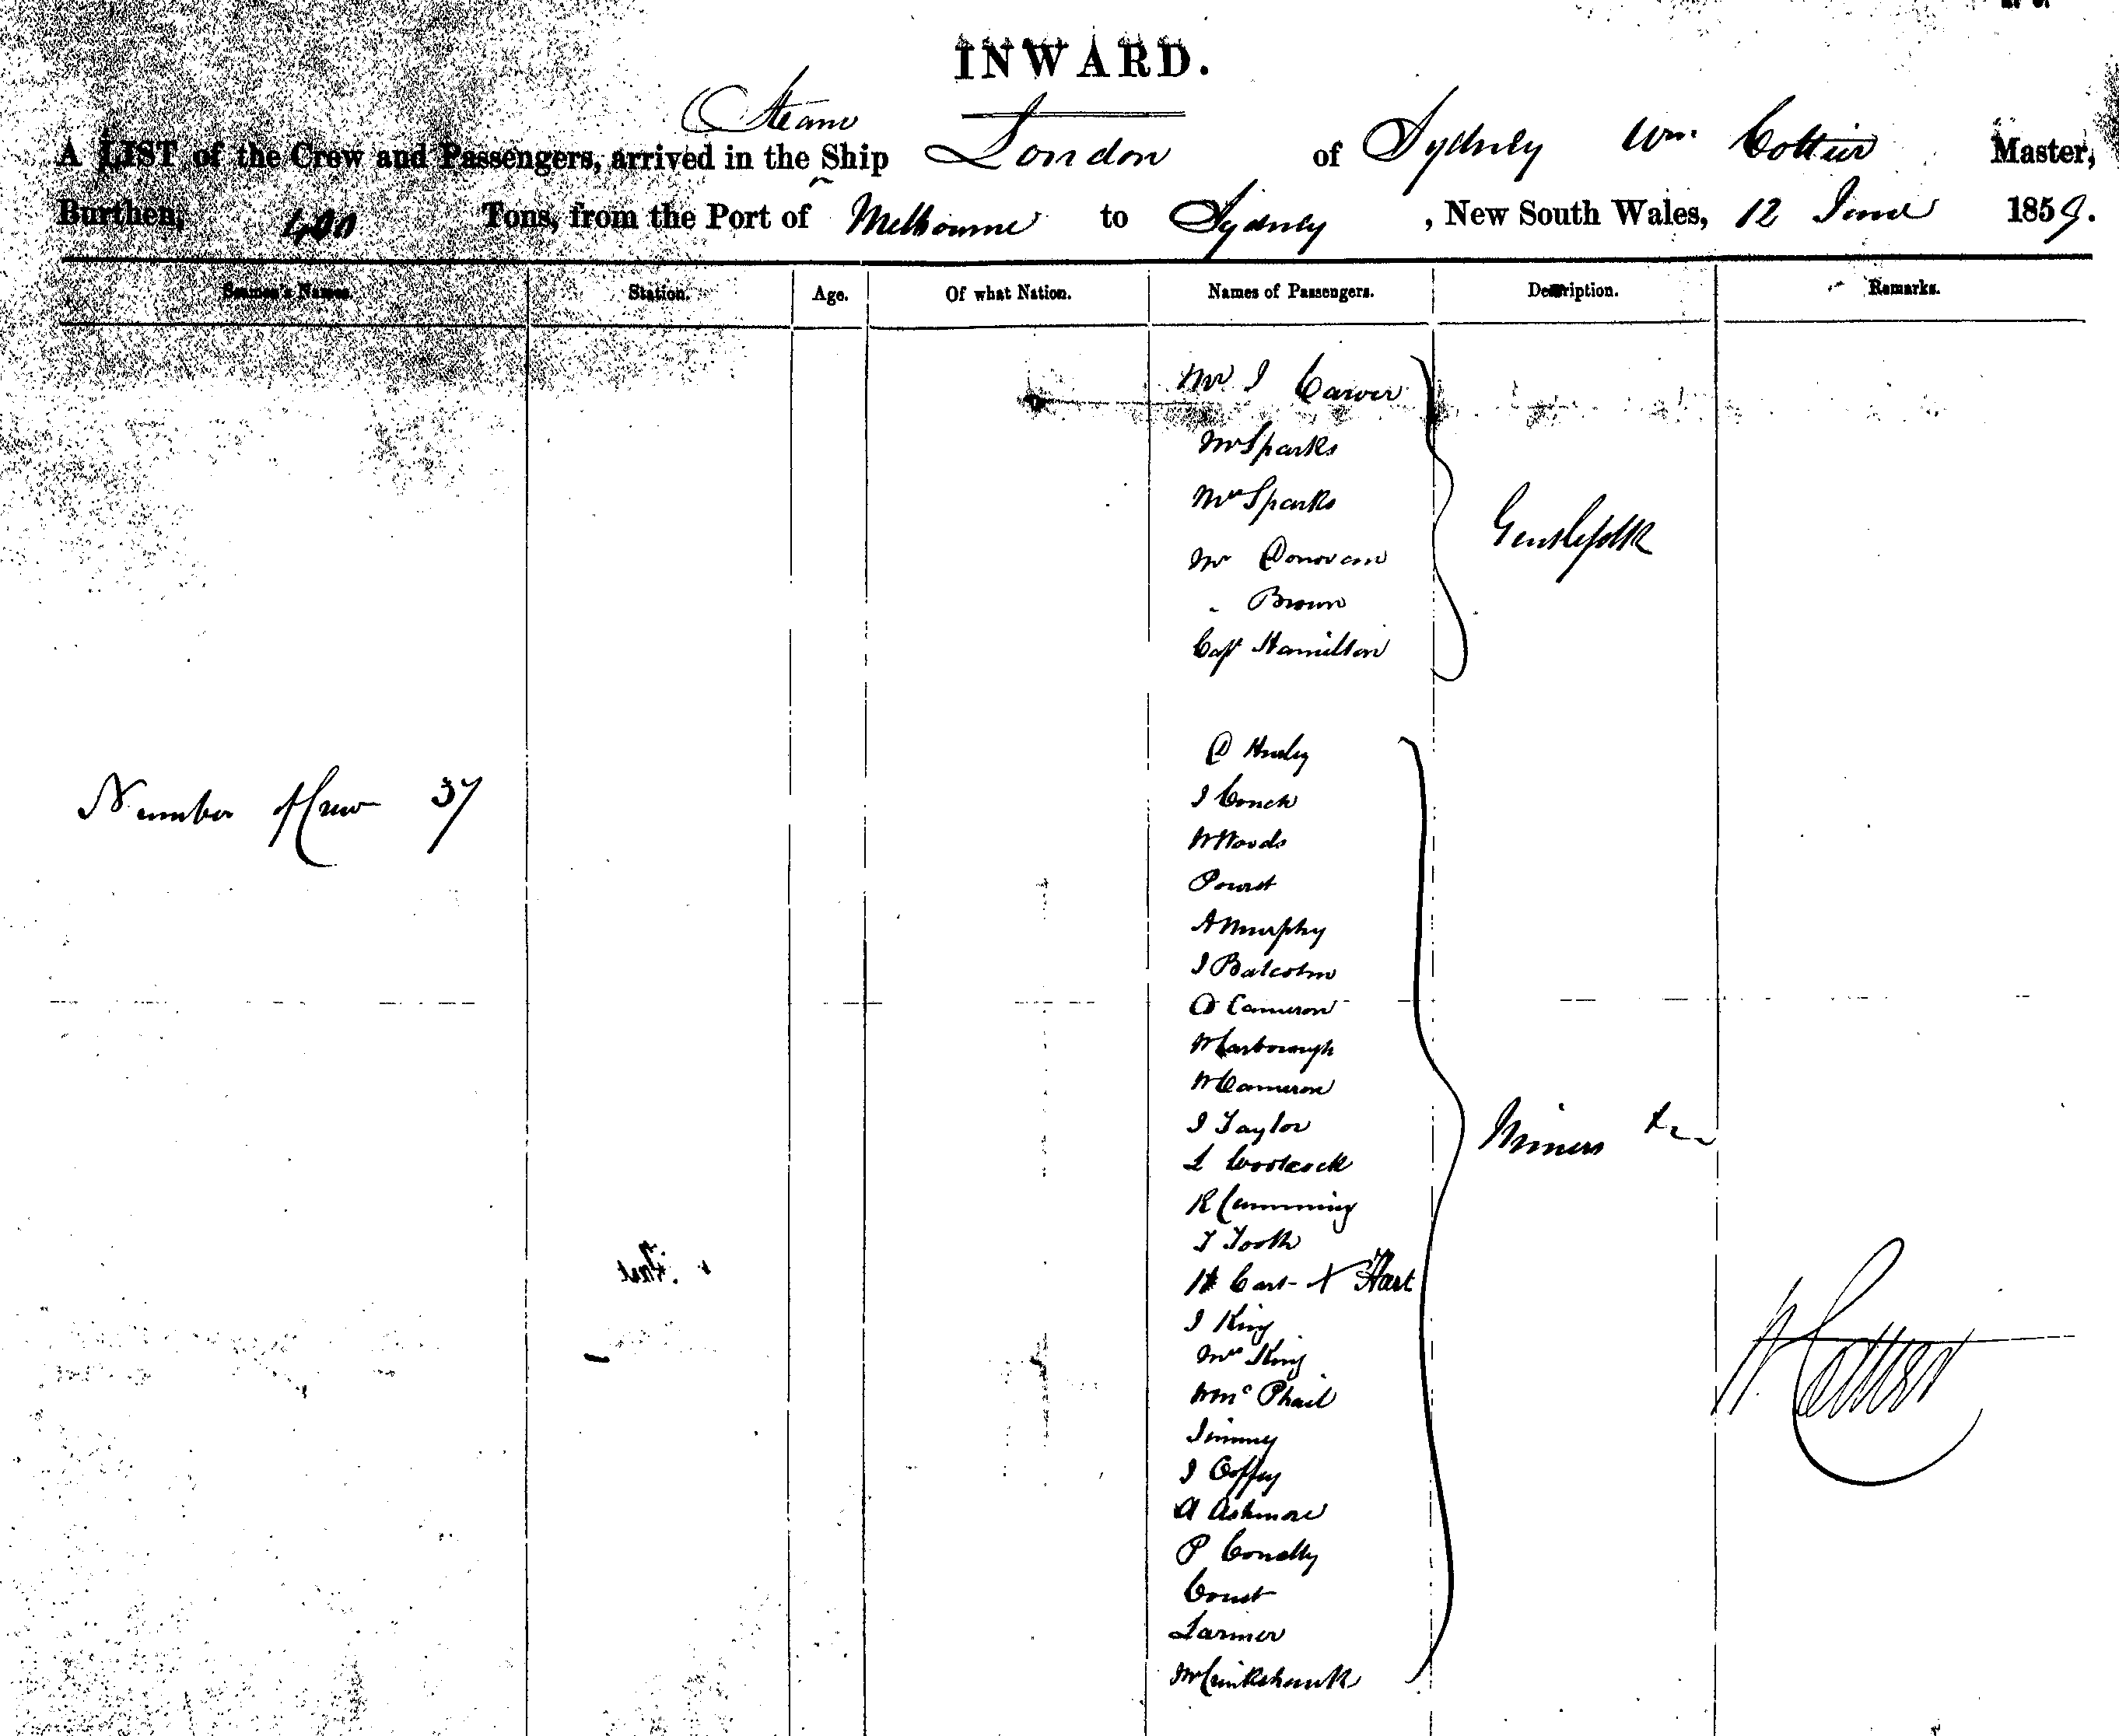 INWARD.
A LIST of the Crew and Passengers, arrived in the Steam Ship London of Sydney Wm Cottier Master,
Burthen, 400 Tons, from the Port of Melbourne to Sydney, New South Wales, 12 June 1859.
Seamen's Names. Station. Age. Of what Nation. Names of Passengers. Description. Remarks.
Mr J Carver
Mr Sparks
Mrs Sparks
Mr Donovan
Gentlefolk
" Brown
Capt Hamilton
D Hurley
J Couch
Number of Crew 37
W Woods
A Murphy
J Balcolm
D Cameron
W Carborough
W Cameron
J Taylor
Miners &c
L Woolcock
R Cumming
J Tooth
H Cart X Hart
J King
Mrs King
W McPhail
W Cottier
Jimmy
J Coffey
A Ashmore
P Conelly
Larmer